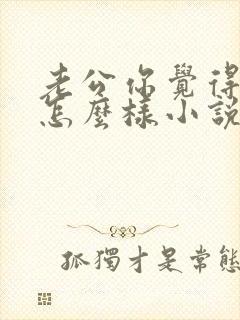 老公你覺得
怎麼樣小説
孤獨才是常態